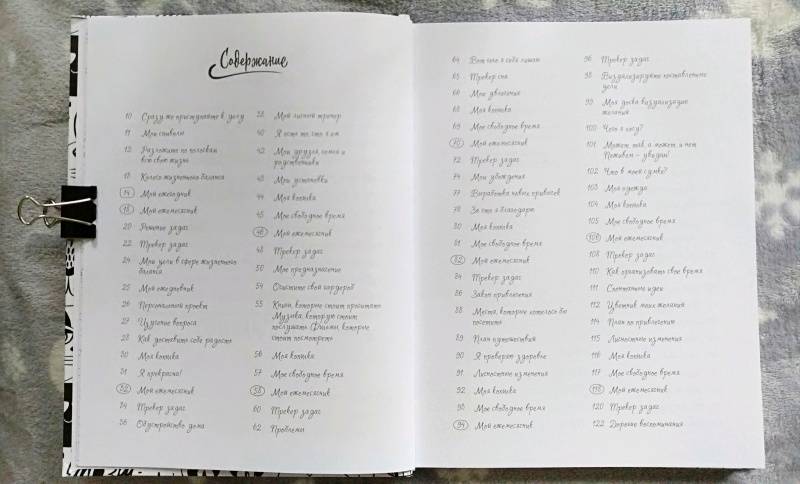 Содержание
10 Сразу же приступайте к делу
11 Мои символы
12 Разложите по полочкам
всю свою жизнь
13 Колесо жизненного баланса
14 Мой ежегодник
18 Мой ежемесячник
20 Решение задач
22 Трекер задач
24 Мои цели в сфере жизненного
баланса
25 Мой ежедневник
26 Персональный проект
27 Изучение вопроса
28 Как доставить себе радость
30 Моя копилка
31 Я прекрасна!
32 Мой ежемесячник
34 Трекер задач
36 Обустройство дома
38 Мой личный трекер
40 Я есть то, что я ем
42 Мои друзья, семья и
родственники
43 Мои установки
44 Моя копилка
45 Мое свободное время
46 Мой ежемесячник
48 Трекер задач
50 Мое предназначение
54 Очистите свой гардероб
55 Книги, которые стоит прочитать
Музыка, которую стоит
послушать Фильмы, которые
стоит посмотреть
56 Моя копилка
57 Мое свободное время
58 Мой ежемесячник
60 Трекер задач
62 Проблемы
64 Вот чего я себя лишаю
65 Трекер сна
66 Мои увлечения
68 Моя копилка
69 Мое свободное время
70 Мой ежемесячник
72 Трекер задач
74 Мои убеждения
77 Выработка новых привычек
78 За что я благодарю
80 Моя копилка
81 Мое свободное время
82 Мой ежемесячник
84 Трекер задач
86 Закон привлечения
88 Места, которые хотелось бы
посетить
89 План путешествия
90 Я проверяю здоровье
91 Личностные изменения
92 Моя копилка
93 Мое свободное время
94 Мой ежемесячник
96 Трекер задач
98 Визуализируйте поставленные
цели
99 Моя доска визуализации
желания
100 Чего я хочу?
101 Может так, а может и нет
Поживем – увидим!
102 Что в моей сумке?
103 Моя одежда
104 Моя копилка
105 Мое свободное время
106 Мой ежемесячник
108 Трекер задач
110 Как организовать свое время
111 Спонтанные идеи
112 Цветник моих желаний
114 План по привлечению
115 Личностные изменения
116 Моя копилка
117 Мое свободное время
118 Мой ежемесячник
120 Трекер задач
122 Дорогие воспоминания